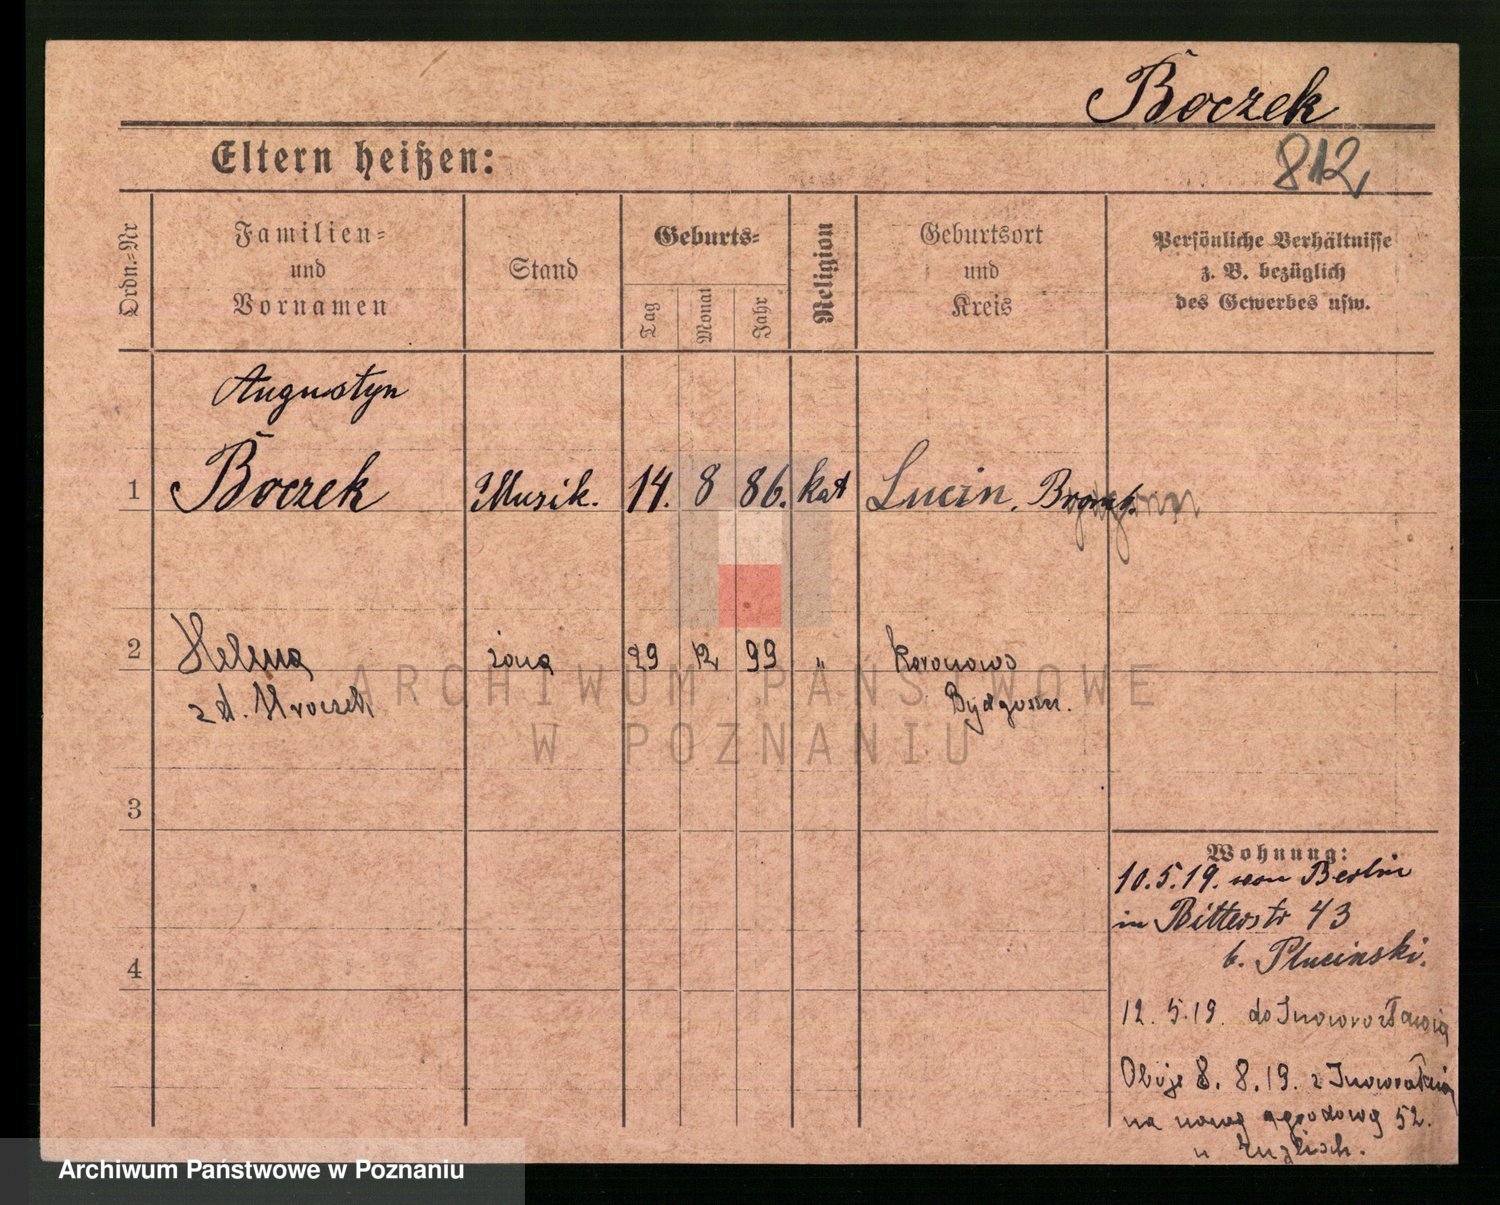 Boczek
Eltern heißen:
812
Ordn.-Nr
Familien-
und
Vornamen
Stand
Geburts-
Tag
Monat
Jahr
Religion
Geburtsort
und
Kreis
Persönliche Verhältnisse
z. B. bezüglich
des Gewerbes usw.
Augustyn
1 Boczek Musik. 14. 8 86. kat Lucin, Bromb.
2 Helena żona 29 12 99 " Koronowo
z d. Bydgoszcz.
3
4
Wohnung:
10.5.19. von Berlin
in Bitterstr 43
b. Plucinski.
12. 5.19. do Inowrocławia
Oboje 8. 8.19. z Inowrocławia
na nową ogrodową 52.
u
ARCHIWUM PAŃSTWOWE
W POZNANIU
Archiwum Państwowe w Poznaniu